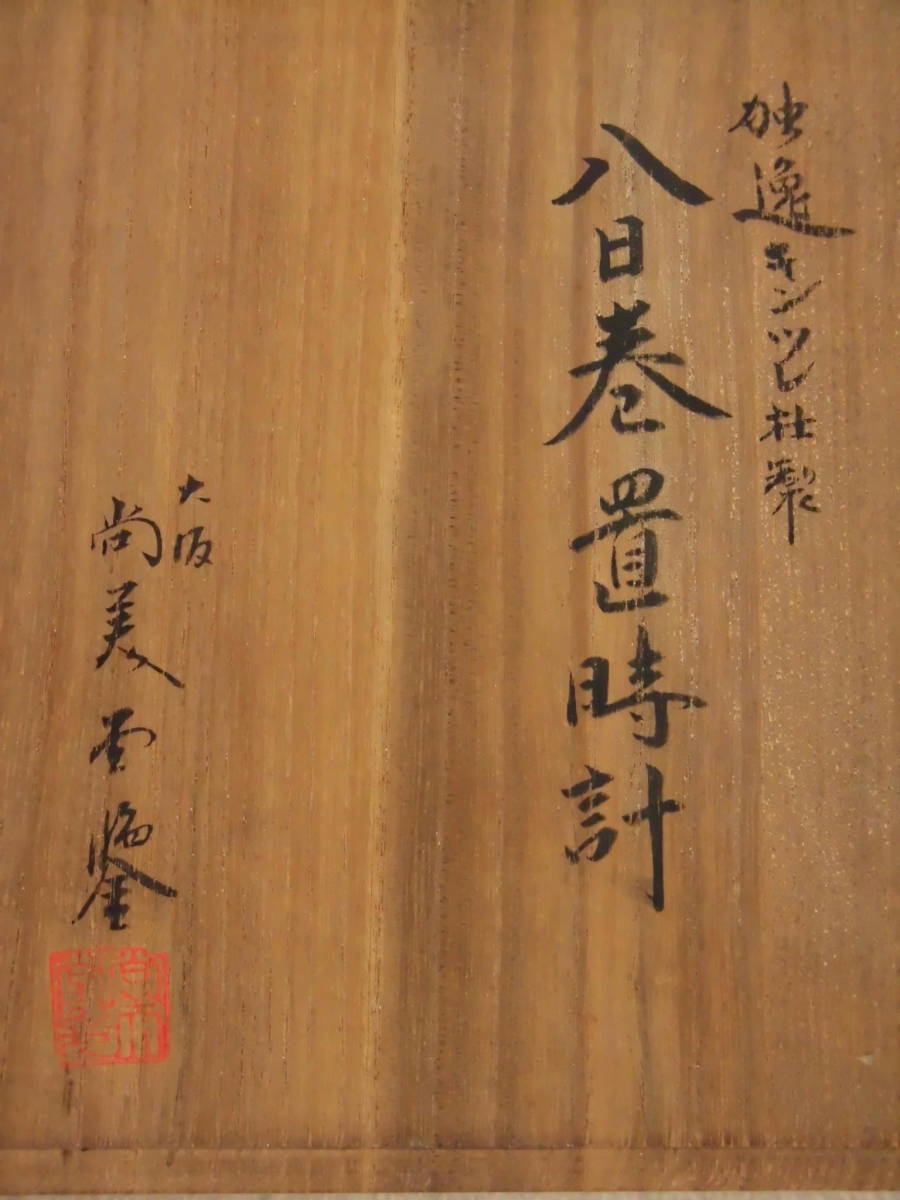 独逸キンツレ社製
八日巻置時計
大阪
尚美堂鑒